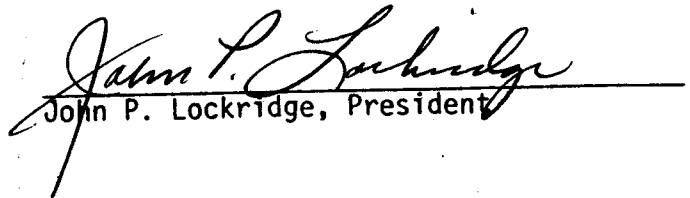 John P. Lockridge
John P. Lockridge, President